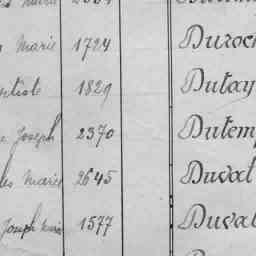 Marie 1724 Duroc
1829 Dutay
Joseph 2370 Dutemp
Marie 2645 Duval
Joseph Marie 1577 Duval